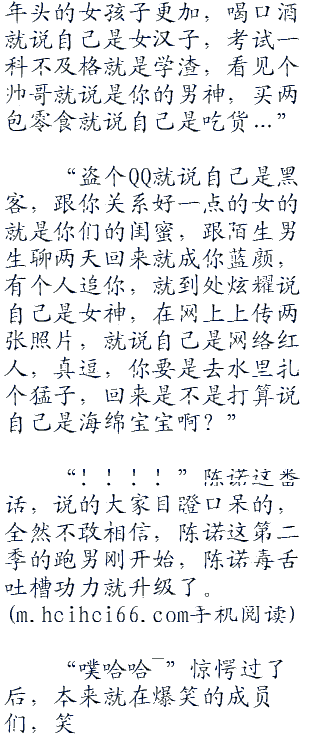 年头的女孩子更加，喝口酒
就说自己是女汉子，考试一
科不及格就是学渣，看见个
帅哥就说是你的男神，买两
包零食就说自己是吃货…”
“盗个QQ就说自己是黑
客，跟你关系好一点的女的
就是你们的闺蜜，跟陌生男
生聊两天回来就成你蓝颜，
有个人追你，就到处炫耀说
自己是女神，在网上上传两
张照片，就说自己是网络红
人，真逗，你要是去水里扎
个猛子，回来是不是打算说
自己是海绵宝宝啊？”
“！！！！”陈诺这番
话，说的大家目瞪口呆的，
全然不敢相信，陈诺这第二
季的跑男刚开始，陈诺毒舌
吐槽功力就升级了。
(m.hcihci66.com手机阅读)
“噗哈哈¯”惊愕过了
后，本来就在爆笑的成员
们，笑